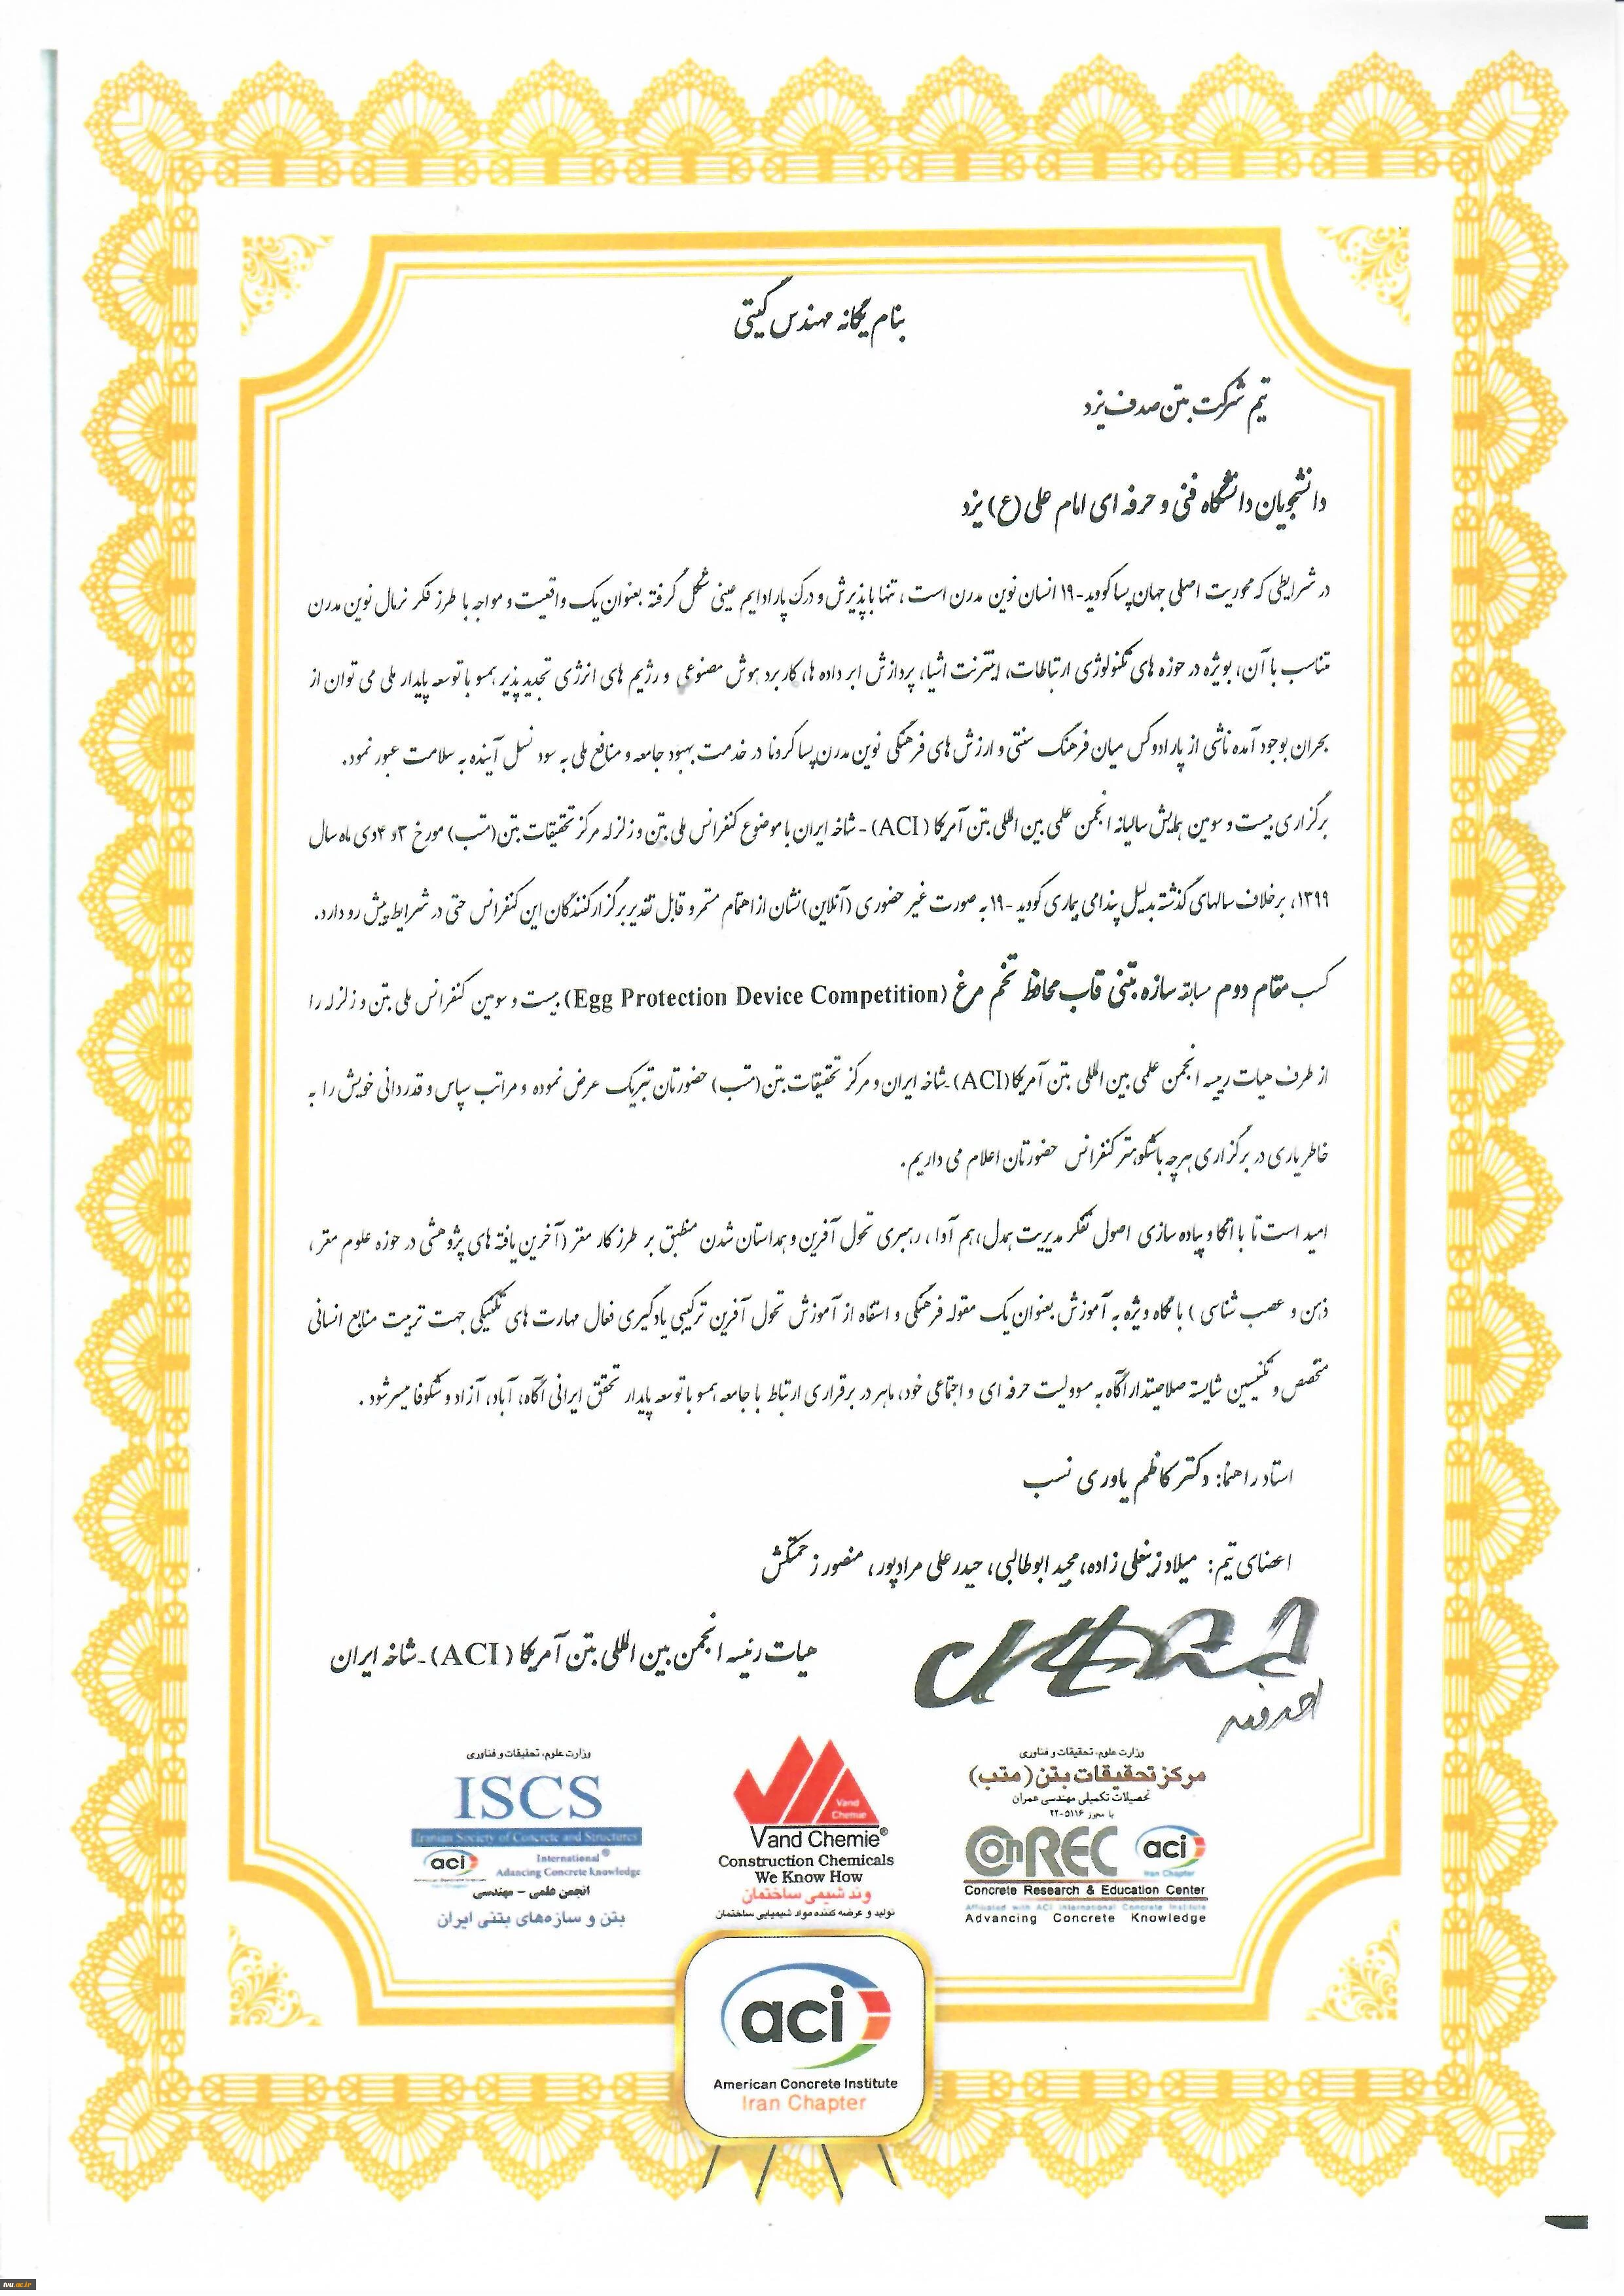 بنام یگانه مهندس گیتی
تیم شرکت بتن صدف یزد
دانشجویان دانشگاه فنی و حرفه ای امام علی (ع) یزد
در شرایطی که محوریت اصلی جهان پساکووید-۱۹ انسان نوین مدرن است، تنها با پذیرش و درک پارادایم عینی شکل گرفته بعنوان یک واقعیت و مواجه با طرز فکر نرمال نوین مدرن
متناسب با آن، بویژه در حوزه های تکنولوژی ارتباطات، اینترنت اشیاء، پردازش ابر داده ها، کاربرد هوش مصنوعی و رژیم های انرژی تجدید پذیر همسو با توسعه پایدار ملی می توان از
بحران بوجود آمده ناشی از پارادوکس میان فرهنگ سنتی و ارزش های فرهنگی نوین مدرن پسا کرونا در خدمت بهبود جامعه و منافع ملی به سود نسل آینده به سلامت عبور نمود.
برگزاری بیست و سومین همایش سالیانه انجمن علمی بین المللی بتن آمریکا (ACI) - شاخه ایران با موضوع کنفرانس ملی بتن و زلزله مرکز تحقیقات بتن (متب) مورخ ۳ و ۴ دی ماه سال
۱۳۹۹، برخلاف سالهای گذشته بدلیل پندامی بیماری کووید -۱۹ به صورت غیر حضوری (آنلاین) نشان از اهتمام مستمر و قابل تقدیر برگزار کنندگان این کنفرانس حتی در شرایط پیش رو دارد.
کسب مقام دوم مسابقه سازه بتنی قاب محافظ تخم مرغ (Egg Protection Device Competition) بیست و سومین کنفرانس ملی بتن و زلزله را
از طرف هیات رییسه انجمن علمی بین المللی بتن آمریکا (ACI) - شاخه ایران و مرکز تحقیقات بتن (متب) حضورتان تبریک عرض نموده و مراتب سپاس و قدردانی خویش را به
خاطر یاری در برگزاری هرچه باشکوهتر کنفرانس حضورتان اعلام می داریم.
امید است تا با اتکا و پیاده سازی اصول تفکر مدیریت همدل، هم آوا، رهبری تحول آفرین و همداستان شدن منطبق بر طرز کار مغز (آخرین یافته های پژوهشی در حوزه علوم مغز،
ذهن و عصب شناسی) با نگاه ویژه به آموزش بعنوان یک مقوله فرهنگی و استفاه از آموزش تحول آفرین ترکیبی یادگیری فعال مهارت های تکنیکی جهت تربیت منابع انسانی
متخصص و تکنسین شایسته صلاحیتدار آگاه به مسوولیت حرفه ای و اجتماعی خود، ماهر در برقراری ارتباط با جامعه همسو با توسعه پایدار تحقق ایرانی آگاه، آباد، آزاد و شکوفا میسر شود.
استاد راهنما: دکتر کاظم یاوری نسب
اعضای تیم: میلاد زینعلی زاده، مجید ابوطالبی، حیدر علی مرادپور، منصور زحمتکش
هیات رئیسه انجمن بین المللی بتن آمریکا (ACI) - شاخه ایران
وزارت علوم، تحقیقات و فناوری
مرکز تحقیقات بتن (متب)
تحصیلات تکمیلی مهندسی عمران
با مجوز ۵۱۱۶-۲۲
ConREC aci
Iran Chapter
Concrete Research & Education Center
Affiliated with ACI International Concrete Institute
Advancing Concrete Knowledge
Vand Chemie
Vand Chemie®
Construction Chemicals
We Know How
وند شیمی ساختمان
تولید و عرضه کننده مواد شیمیایی ساختمان
وزارت علوم، تحقیقات و فناوری
ISCS
Iranian Society of Concrete and Structures
aci International®
Adancing Concrete knowledge
انجمن علمی - مهندسی
بتن و سازه‌های بتنی ایران
aci
American Concrete Institute
Iran Chapter